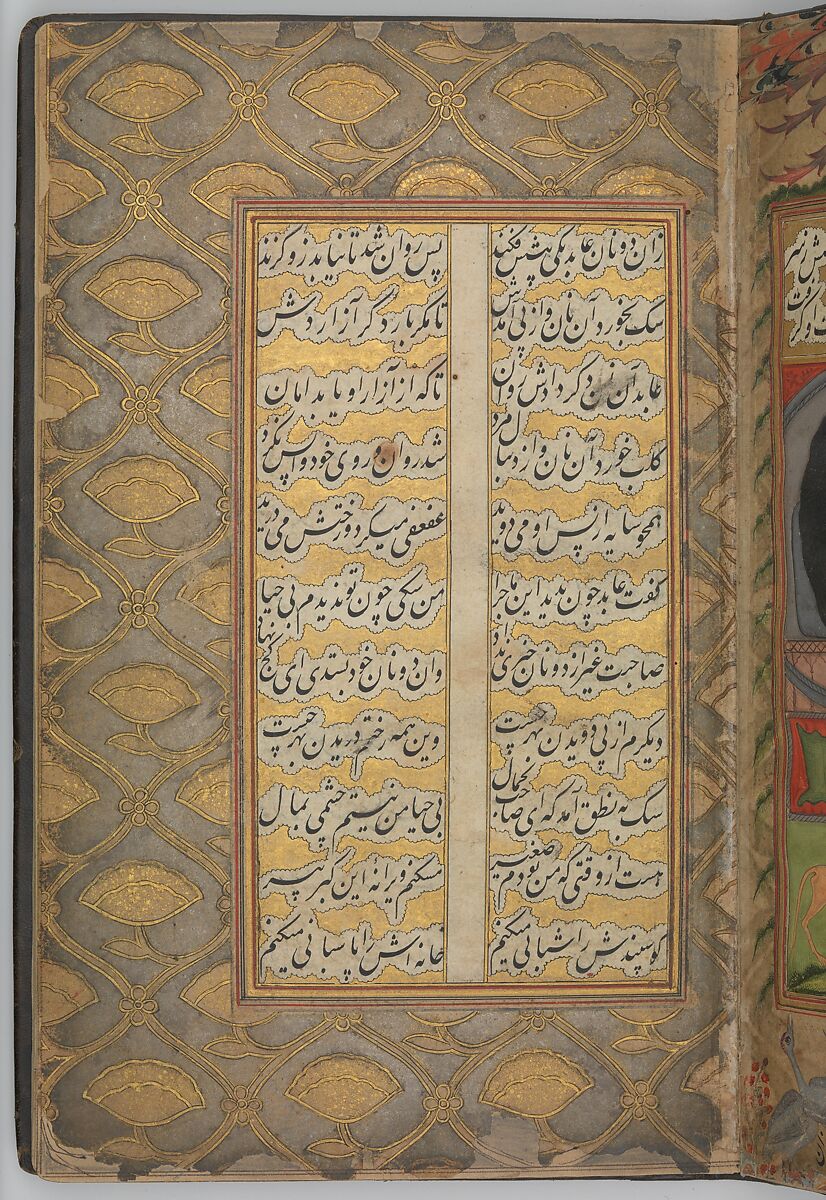 زان دو نان عابد یکی پیشش فکند پس روان شد تا نیابد زو گزند
سک بخورد آن نان و از پی آمدش تا مکر بار دگر آزاردش
عابد آن نان دگر دادش روان تا که از آزار او یابد امان
کلب خورد آن نان و از دنبال مرد شد روان و روی خود واپس نکرد
همچو سایه از پس او می دوید عفعفی میکرد و رختش می درید
گفت عابد چون بدید این ماجرا من سکی چون تو ندیدم بی حیا
صاحبت غیر از دو نان خبزی نداد وان دو نان خود بستدی ای کج نهاد
دیکرم از پی دویدن بهر چیست وین همه رختم دریدن بهر چیست
سک به نطق آمد که ای صاحب کمال بی حیا من نیستم چشمی بمال
هست از وقتی که من بودم صغیر مسکنم ویرانه این کبر پیر
کوسپندش را شبانی میکنم خانه اش را پاسبانی میکنم